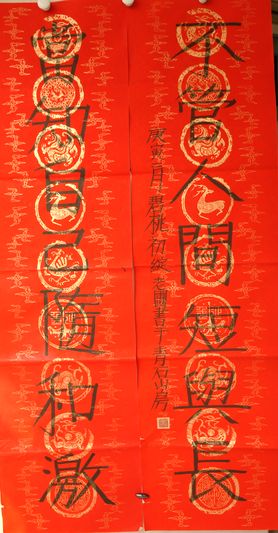 不管人間短與長
當自己隨和激
庚寅二月碧桃初綻老圃書于青石山房